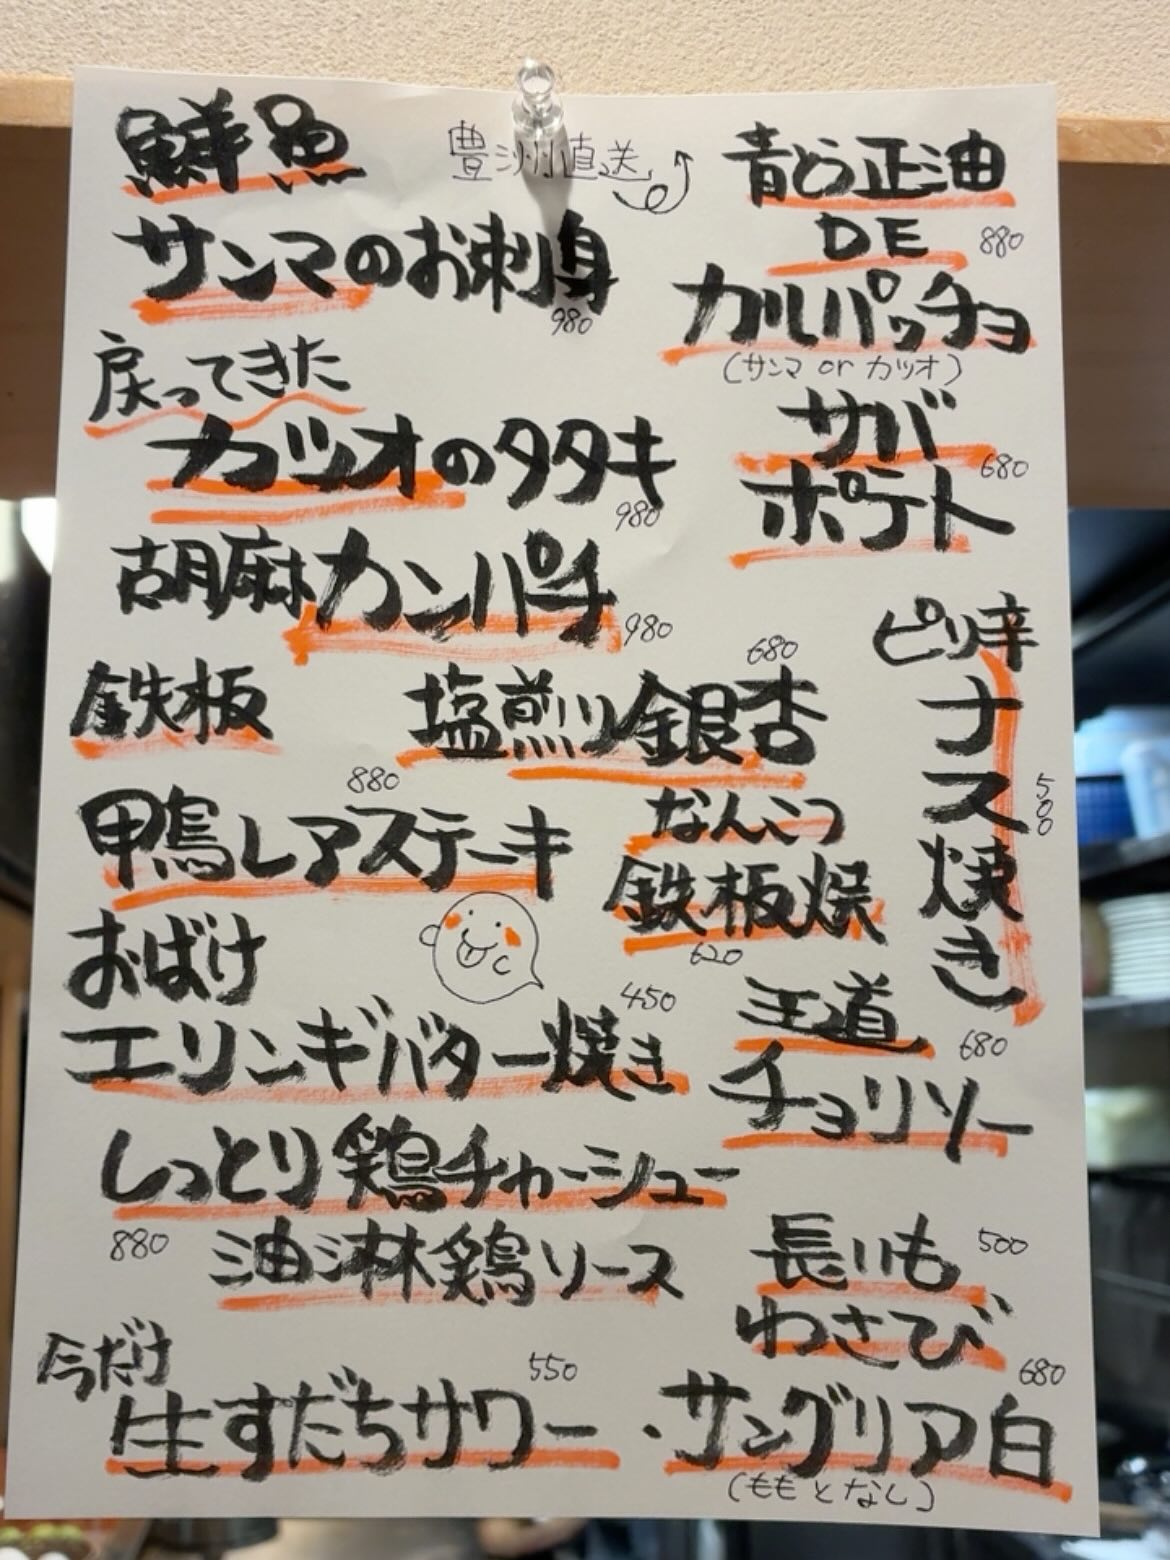 鮮魚
豊洲直送
サンマのお刺身
980
戻ってきた
カツオのタタキ
980
胡麻カンパチ
980
青とう正油
DE
880
カルパッチョ
(サンマ or カツオ)
サバ
ポテト
680
鉄板
塩煎り銀杏
680
ピリ辛
ナス焼き
500
鴨レアステーキ
880
なんこつ
鉄板焼
620
おばけ
エリンギバター焼き
450
王道
チョリソー
680
しっとり鶏チャーシュー
油淋鶏ソース
880
長いも
わさび
500
今だけ
生すだちサワー
550
・サングリア白
680
(ももとなし)